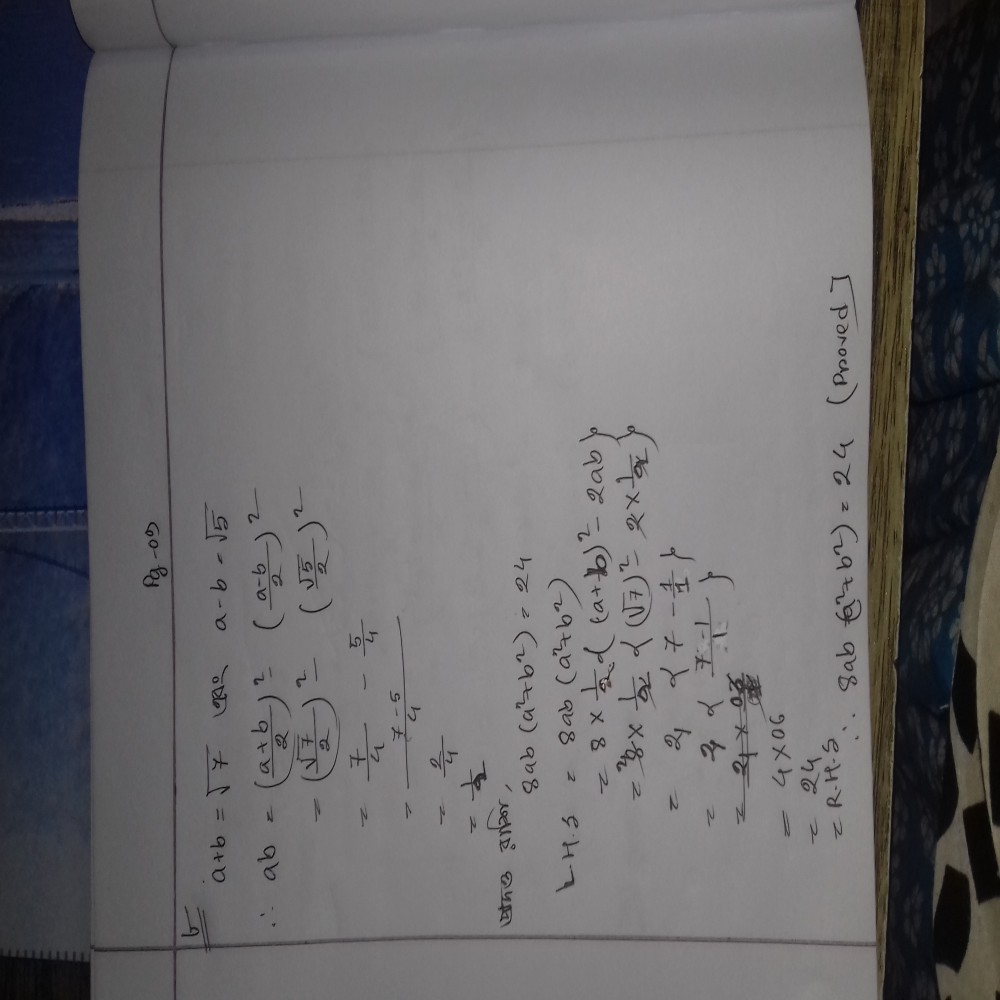 Pg-03
b
a+b = √7 এবং a-b = √5
∴ ab = (a+b/2)² - (a-b/2)²
= (√7/2)² - (√5/2)²
= 7/4 - 5/4
= 7-5/4
= 2/4
= 1/2
প্রদত্ত রাশি,
8ab (a²+b²) = 24
L.H.S = 8ab (a²+b²)
= 8 × 1/2 { (a+b)² - 2ab }
= 8 × 1/2 { (√7)² - 2 × 1/2 }
= 4 { 7 - 1/1 }
= 4 { 7-1/1 }
= 4 × 06
= 24
= R.H.S
∴ 8ab (a²+b²) = 24 (Proved]